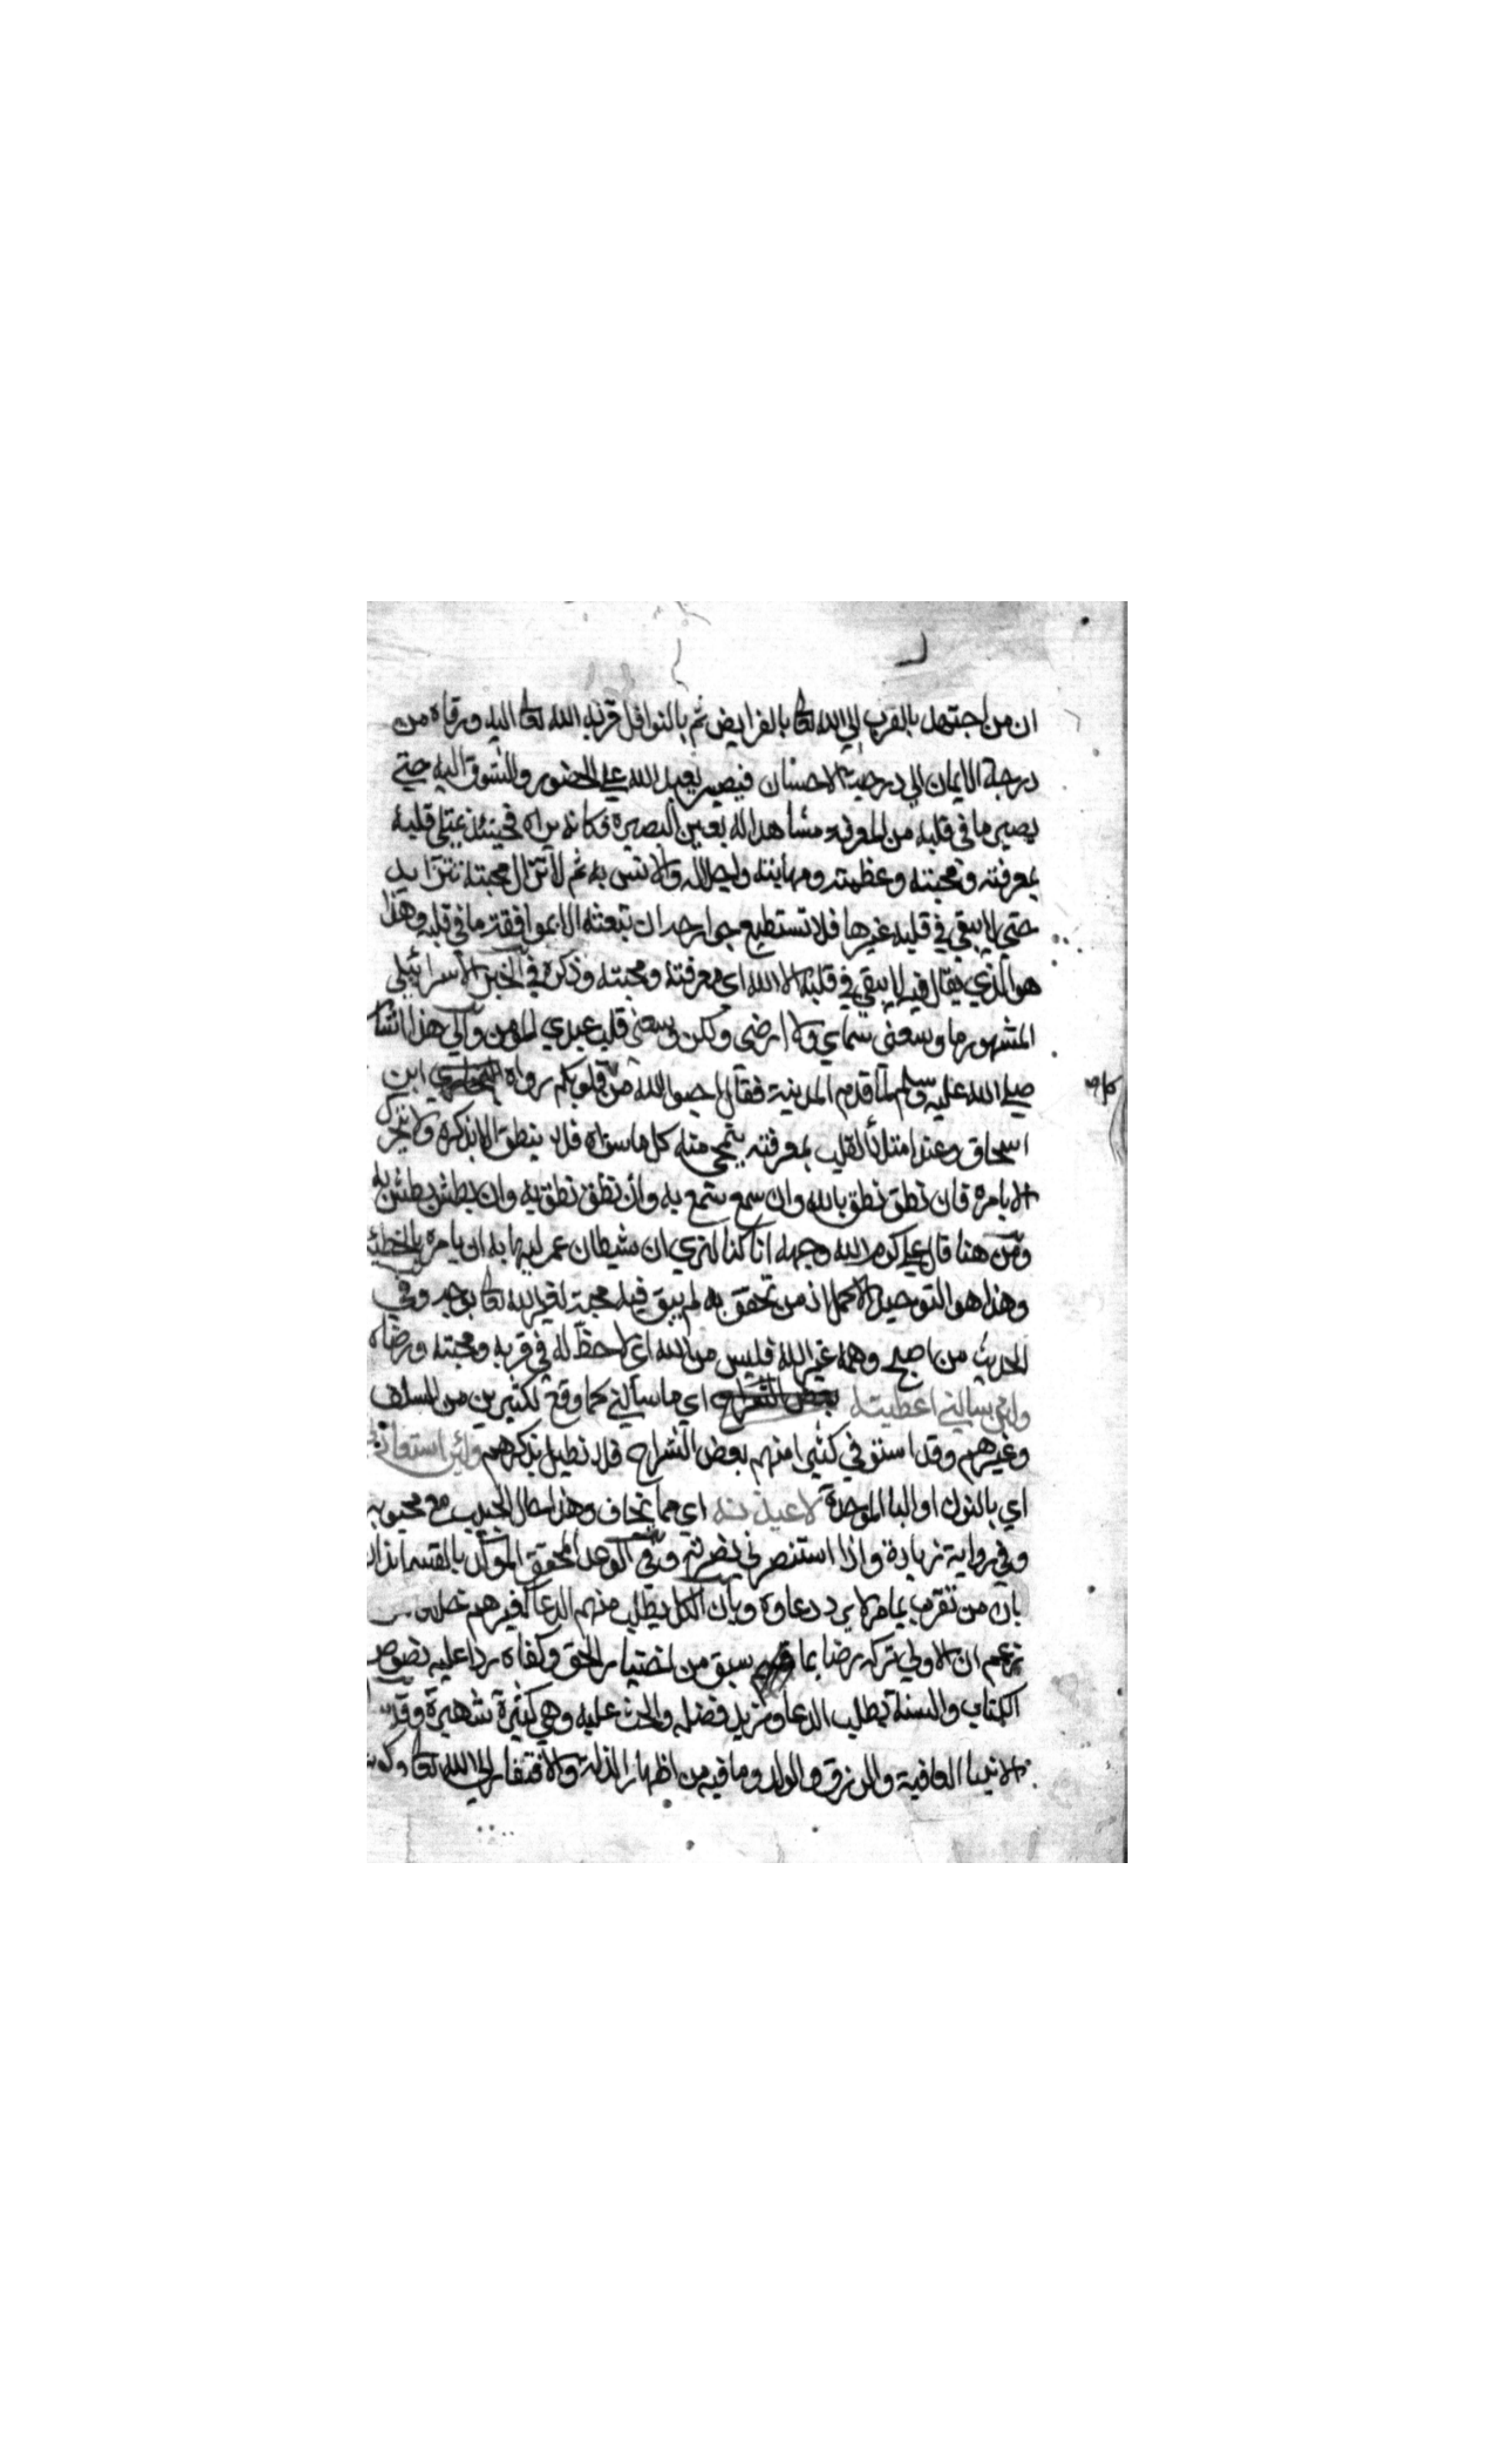 ان من اجتهد بالقرب الي الله تعا بالفرايض ثم بالنوافل قربه الله تعا اليه ورقاه من
درجة الايمان الي درجة الاحسان فيصير يعبد الله علي الحضور والشوق اليه حتي
يصير ما في قلبه من المعرفة مشاهدا له بعين البصيرة فكانه يراه فحينئذ يمتلي قلبه
بمعرفته ومحبته وعظمته ومهابته واجلاله والانس به ثم لا تزال محبته تتزايد
حتي لا يبقي في قلبه غيرها فلا تستطيع جوارحه ان تبعثه الا بموافقة ما في قلبه وهذا
هو الذي يقال فيه لا يبقي في قلبه الا الله اي معرفته ومحبته وذكره في الخبر الاسرائيلي
المشهور ما وسعني سماي ولا ارضي ولكن وسعني قلب عبدي المومن والي هذا اشا
صلي الله عليه وسلم لما قدم المدينة فقال احبوا الله من قلوبكم رواه ابن
اسحاق وعند امتلأ القلب بمعرفته يتمحي منه كل ما سواه فلا ينطق الا بذكره ولا يتحرك
الا بامره فان نطق نطق بالله وان سمع سمع به وان نظر نظر به وان بطش بطش به
ومن هنا قال علي كرم الله وجهه انا كنا لنري ان شيطان عمر ليهابه ان يامره بالخطيئ
وهذا هو التوحيد الاكمل اذ من تحقق به لم يبق فيه محبة لغير الله تعا بوجه وفي
الحديث من اصبح وهمه غير الله فليس من الله اي لا حظ له في قربه ومحبته ورضاه
ولئن سالني اعطيته اي ما سالني كما وقع لكثيرين من السلف
وغيرهم وقد استوفي كثيرا منهم بعض الشراح فلا نطيل بذكرهم ولئن استعاذني
اي بالنون او البا الموحدة لاعيذنه اي مما يخاف وهذا حال الحبيب مع محبوبه
وفي رواية زيادة واذا استنصرني نصرته وفي الوعد المحقق الموكد بالقسم ايذان
بان من تقرب بما مر لا يرد دعاوه وبان الكل يطلب منهم الدعا لغيرهم
زعم ان الاولي تركه رضا بما سبق من اختيار الحق وكفاه ردا عليه نصوص
الكتاب والسنة بطلب الدعا ومزيد فضله والحث عليه وهي كثيرة شهيرة وقد
الانبيا العافية والرزق والولد وما فيه من اظهار الذلة والافتقار الي الله تعا وكون